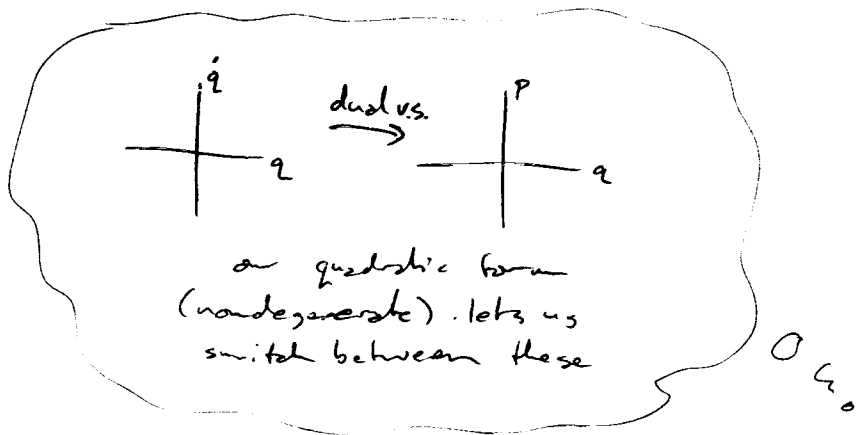 q̇
dual v.s.
p
q
q
our quadratic form
(nondegenerate). lets us
switch between these